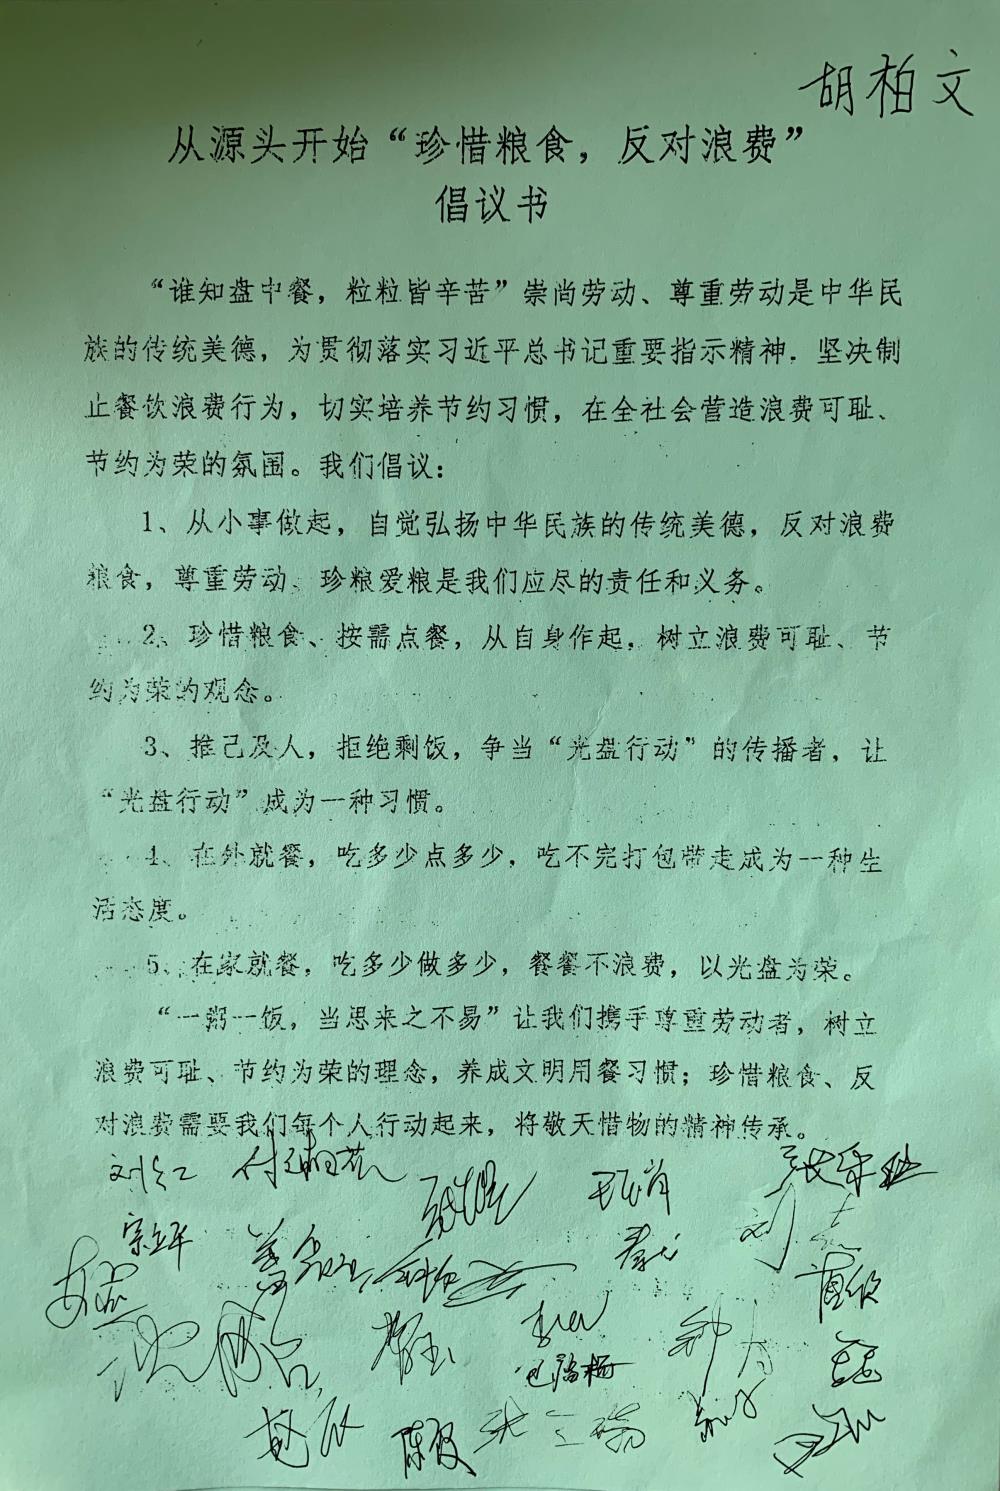 胡柏文
从源头开始“珍惜粮食，反对浪费”
倡议书
“谁知盘中餐，粒粒皆辛苦”崇尚劳动、尊重劳动是中华民
族的传统美德，为贯彻落实习近平总书记重要指示精神．坚决制
止餐饮浪费行为，切实培养节约习惯，在全社会营造浪费可耻、
节约为荣的氛围。我们倡议：
1、从小事做起，自觉弘扬中华民族的传统美德，反对浪费
粮食，尊重劳动、珍粮爱粮是我们应尽的责任和义务。
2、珍惜粮食、按需点餐，从自身作起，树立浪费可耻、节
约为荣的观念。
3、推己及人，拒绝剩饭，争当“光盘行动”的传播者，让
“光盘行动”成为一种习惯。
4、在外就餐，吃多少点多少，吃不完打包带走成为一种生
活态度。
5、在家就餐，吃多少做多少，餐餐不浪费，以光盘为荣。
“一粥一饭，当思来之不易”让我们携手尊重劳动者，树立
浪费可耻、节约为荣的理念，养成文明用餐习惯；珍惜粮食、反
对浪费需要我们每个人行动起来，将敬天惜物的精神传承。
宗立平